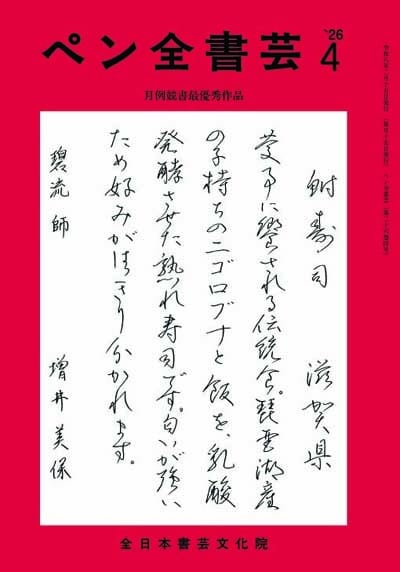 ペン全書芸
'26
4
月例競書最優秀作品
鮒寿司 滋賀県
慶事に饗される伝統食。琵琶湖産
の子持ちのニゴロブナと飯を、乳酸
発酵させた熟れ寿司です。匂いが強い
ため好みがはっきり分かれます。
碧流 師 増井美保
全日本書芸文化院